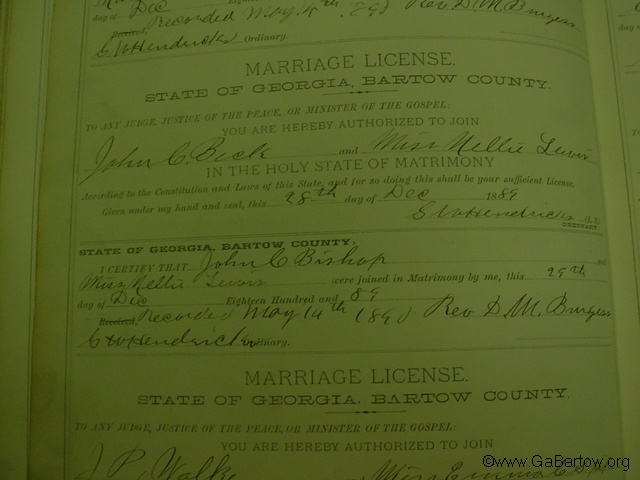 day of Dec Eighteen
Received, Recorded May 14th 1890 Rev D. M. Burgess
G W Hendricks Ordinary.
MARRIAGE LICENSE.
STATE OF GEORGIA, BARTOW COUNTY.
TO ANY JUDGE, JUSTICE OF THE PEACE, OR MINISTER OF THE GOSPEL:
YOU ARE HEREBY AUTHORIZED TO JOIN
John C. Beck and Miss Nellie Lewis
IN THE HOLY STATE OF MATRIMONY
According to the Constitution and Laws of this State, and for so doing this shall be your sufficient License.
Given under my hand and seal, this 28th day of Dec 1889
G W Hendricks (L.S.)
ORDINARY.
STATE OF GEORGIA, BARTOW COUNTY.
I CERTIFY THAT John C Bishop and
Miss Nellie Lewis were joined in Matrimony by me, this 29th
day of Dec Eighteen Hundred and 89
Received, Recorded May 14th 1890 Rev D. M. Burgess
G W Hendricks Ordinary.
MARRIAGE LICENSE.
STATE OF GEORGIA, BARTOW COUNTY.
TO ANY JUDGE, JUSTICE OF THE PEACE, OR MINISTER OF THE GOSPEL:
YOU ARE HEREBY AUTHORIZED TO JOIN
J. P. Walke Miss Emma C
©www.GaBartow.org